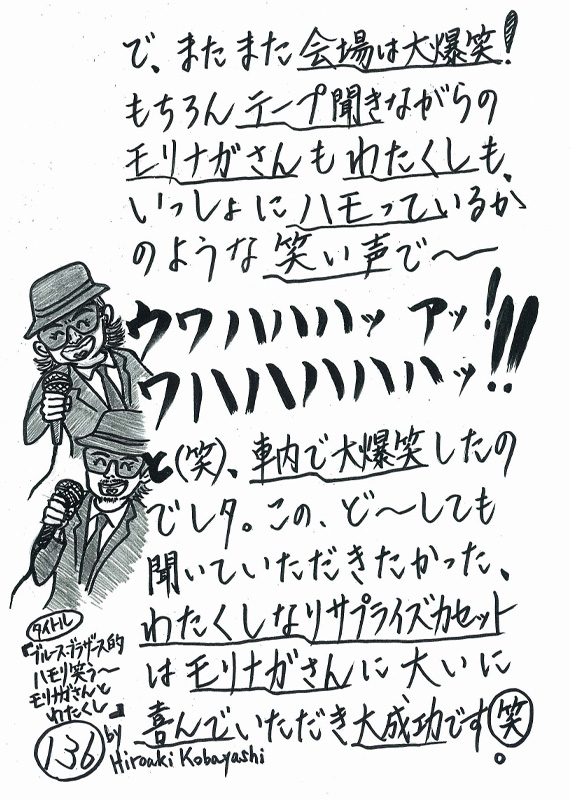 で、またまた会場は大爆笑!
もちろんテープ聞きながらの
モリナガさんもわたくしも、
いっしょにハモっているか
のような笑い声で〜
ウワハハハッ アッ!
ワハハハハハハッ!!
と(笑)、車内で大爆笑したの
でしタ。この、ど〜しても
聞いていただきたかった、
わたくしなりサプライズカセット
はモリナガさんに大いに
喜んでいただき大成功です笑。
タイトル
『ブルース・ブラザース的
ハモリ笑う〜
モリナガさんと
わたくし』
136
by
Hiroaki Kobayashi